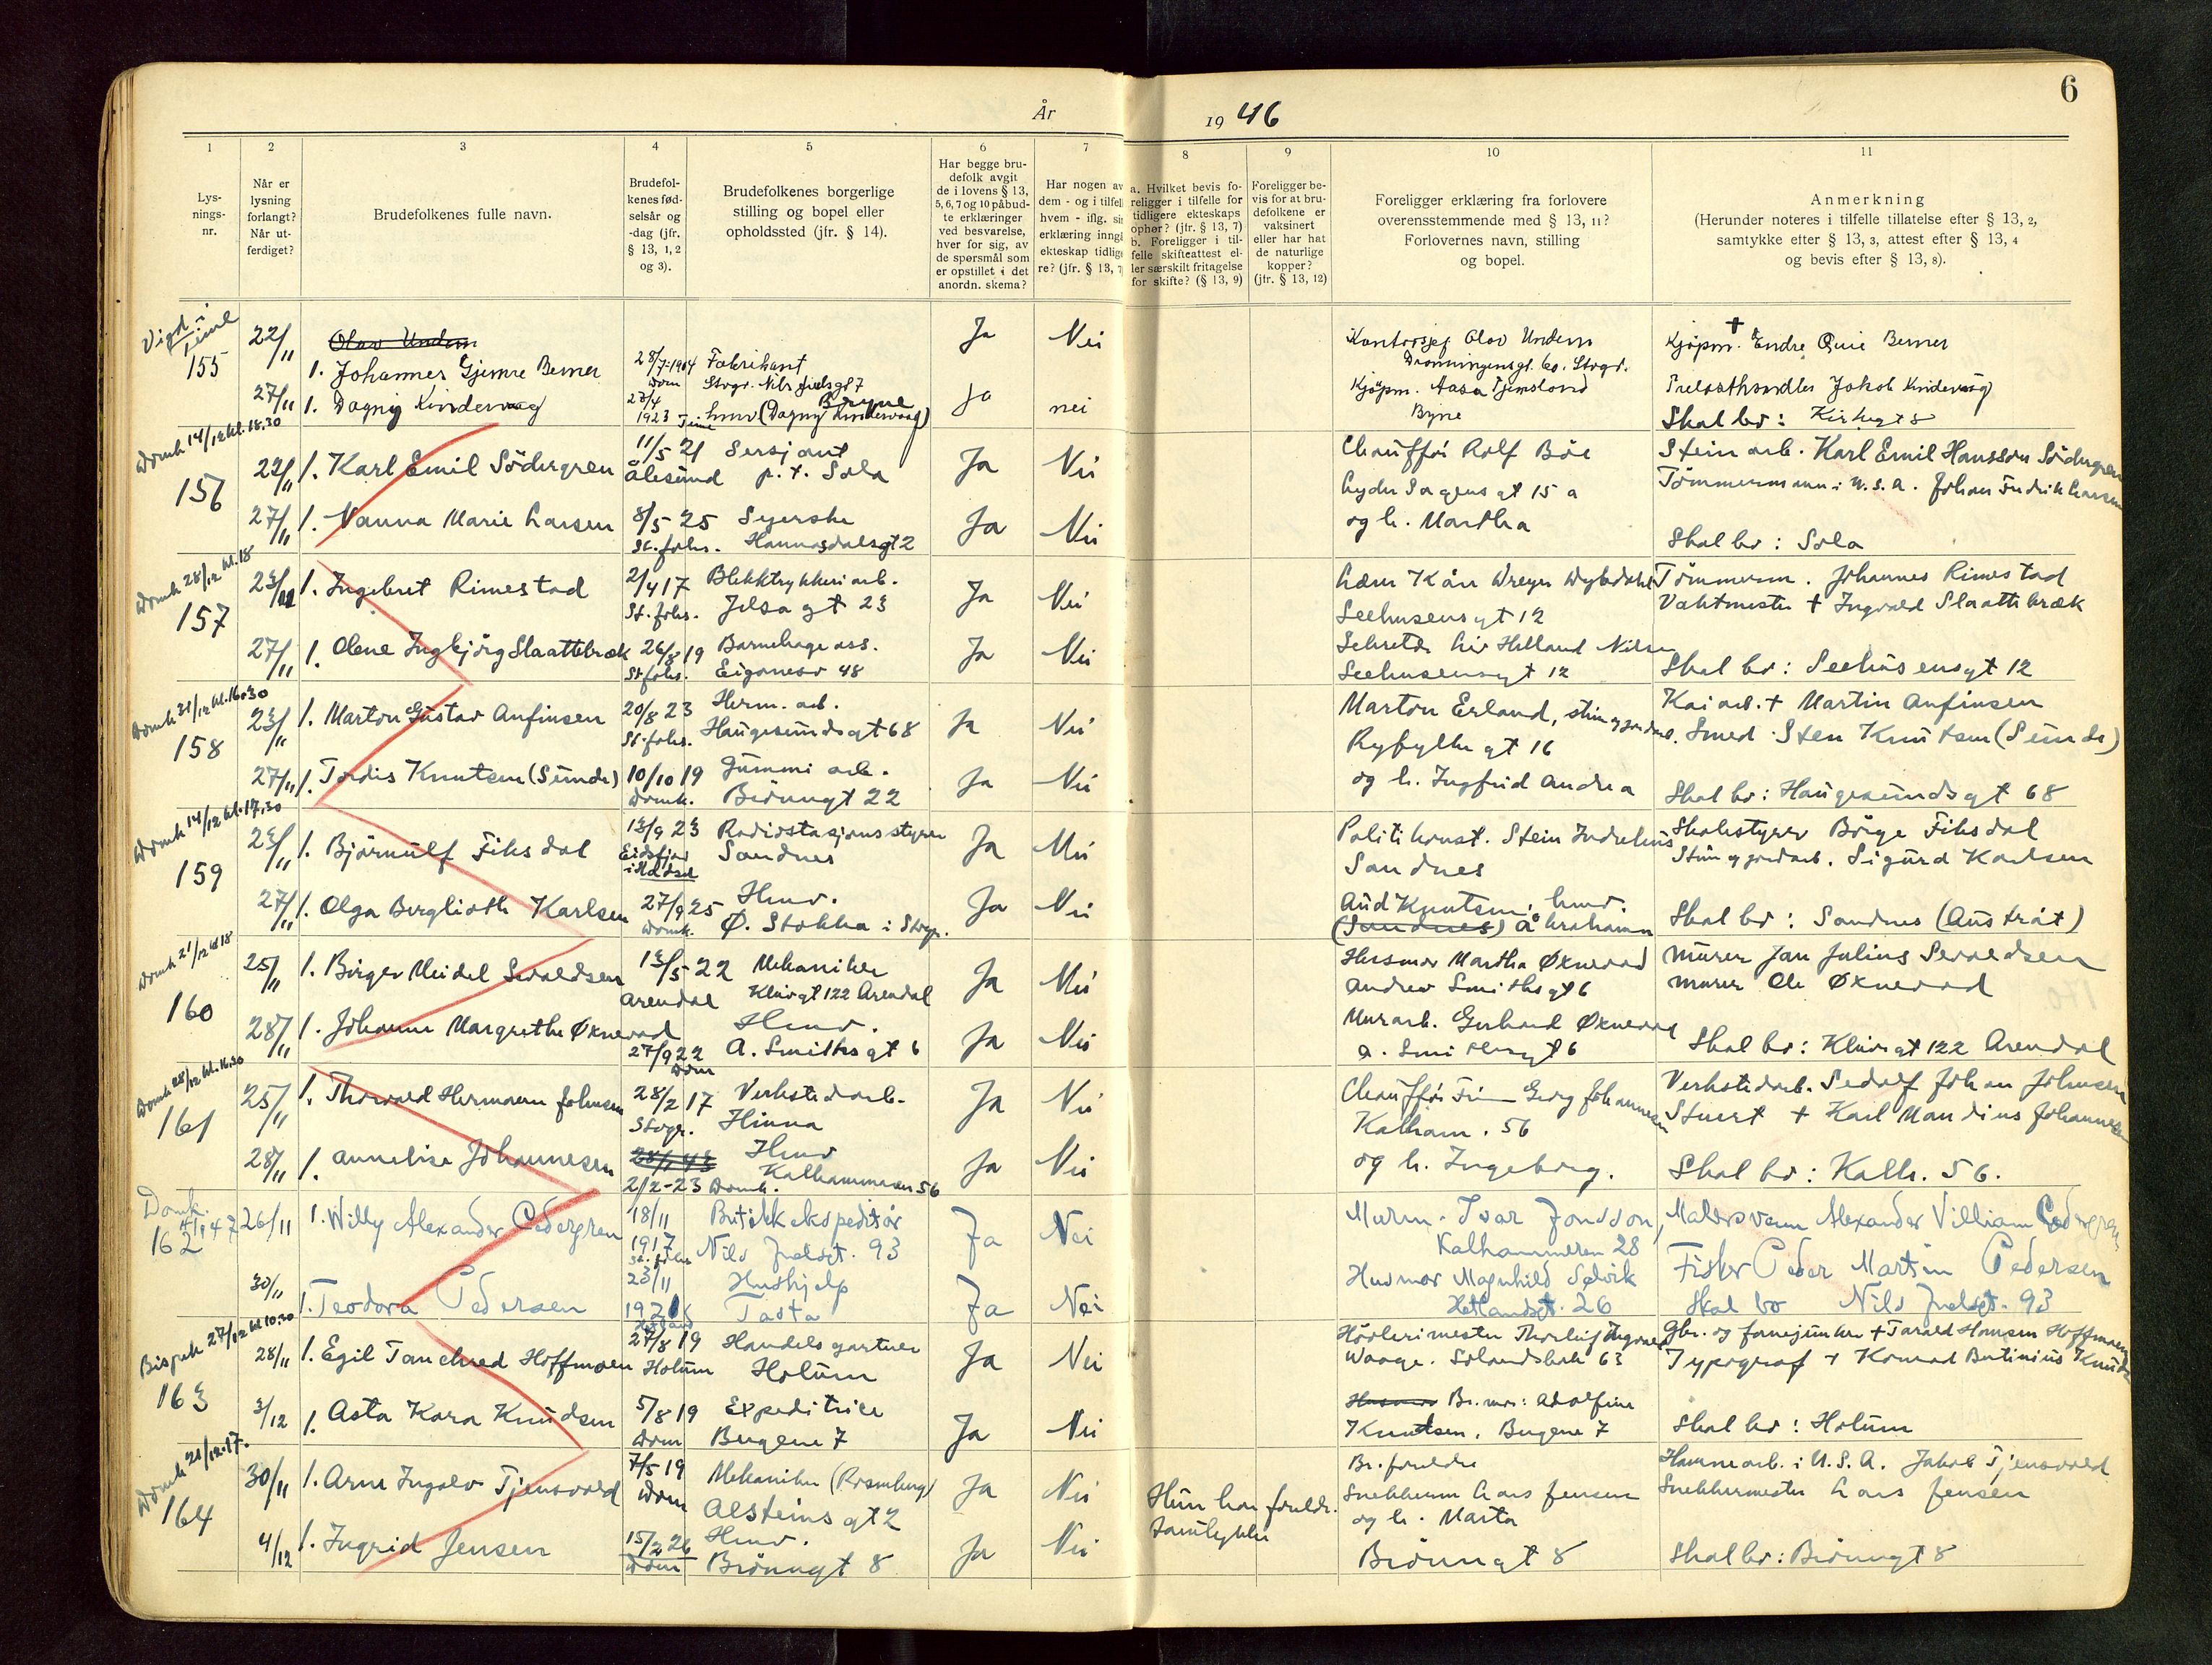 6
År 1946
1 2 3 4 5 6 7 8 9 10 11
Lys-
nings-
nr.
Når er
lysning
forlangt?
Når ut-
ferdiget?
Brudefolkenes fulle navn.
Brudefol-
kenes fød-
selsår og
-dag (jfr.
§ 13, 1, 2
og 3).
Brudefolkenes borgerlige
stilling og bopel eller
opholdssted (jfr. § 14).
Har begge bru-
defolk avgit
de i lovens § 13,
5, 6, 7 og 10 påbud-
te erklæringer
ved besvarelse,
hver for sig, av
de spørsmål som
er opstillet i det
anordn. skema?
Har nogen av
dem - og i tilfelle
hvem - iflg. sin
erklæring inngå
ekteskap tidlige
re? (jfr. § 13, 7
a. Hvilket bevis fo-
religger i tilfelle for
tidligere ekteskaps
ophør? (jfr. § 13, 7)
b. Foreligger i til-
felle skifteattest el-
ler særskilt fritagelse
for skifte? (§ 13, 9)
Foreligger be-
vis for at bru-
defolkene er
vaksinert
eller har hat
de naturlige
kopper?
(jfr. § 13, 12)
Foreligger erklæring fra forlovere
overensstemmende med § 13, 11?
Forlovernes navn, stilling
og bopel.
Anmerkning
(Herunder noteres i tilfelle tillatelse efter § 13, 2,
samtykke efter § 13, 3, attest efter § 13, 4
og bevis efter § 13, 8).
Vigd i Time
155
22/11 Olav Undem Ja Nei
1. Johannes Gjemre Berner 28/7-1904 Dom Fabrikant
Stvgr. Nils Juelsgt 7
Kontorsjef Olav Undem
Dronningensgt. 60. Stvgr.
Kjøpm. † Endre Berner
27/11 1. Dagny Kindervaag 27/4 1923 Time Bryne
hmv (Dagny Kindervaag) Ja nei
Kjøpm. Aasa Tjemsland
Bryne
Jakob Kindervaag
Skal bo: Kirkegt 8
Domk 14/12 kl. 18.30
156
22/11 1. Karl Emil Södergren 11/5 21 Ålesund Sersjant
p.t. Sola Ja Nei
Chauffør Rolf Böe
Lyder Sagensgt 15 a
Steinarb. Karl Emil Hansson Södergren
Tömmermann i U.S.A. Johan Fredrik Larsen
27/11 1. Nanna Marie Larsen 8/5 25 St. Johs. Syerske
Hannasdalsgt 2 Ja Nei
og h. Martha
Skal bo: Sola
Domk 28/12 kl. 18
157
23/11 1. Ingebret Rimestad 2/4 17 St. Johs. Blikktrykkeriarb.
Jelsagt 23 Ja Nei
Seehusensgt 12
Tömmerm. Johannes Rimestad
Vaktmester † Ingvald Slaattebræk
27/11 1. Olene Ingbjörg Slaattebræk 26/8 19 St. Johs. Barnehage ass.
Eiganesv 48 Ja Nei
Sekretær Liv Helland Nilsen
Seehusensgt 12
Skal bo: Seehusensgt 12
Domk 21/12 kl. 16.30
158
23/11 1. Marton Gustav Anfinsen 20/8 23 St. Johs. Herm. arb.
Haugesundsgt 68 Ja Nei
Marton Erland,
Ryfylkegt 16
Kaiarb. † Martin Anfinsen
Smed Sten Knutsen (Sunde)
27/11 1. Tordis Knutsen (Sunde) 10/10 19 Domk. Gummi arb.
Brönngt 22 Ja Nei
og h. Ingfrid Andrea
Skal bo: Haugesundsgt 68
Domk 14/12 kl. 17.30
159
23/11 1. Björnulf Fiksdal 13/9 23 Eidsfjord i Hadsel Radiostasjonsstyrer
Sandnes Ja Nei
Politikonst. Stein Indrehus
Sandnes
Skolestyrer Börge Fiksdal
Sten og jordarb. Sigurd Karlsen
27/11 1. Olga Berglioth Karlsen 27/9 25 Domk. Hmv.
Ø. Stokka i Stvgr. Ja Nei
Aud Knutsen, hmv.
(Sandnes)
Skal bo: Sandnes (Austråt)
Domk 21/12 kl 18
160
25/11 1. Birger Meidel Sevaldsen 13/5 22 Arendal Mekaniker
Klüvgt 122 Arendal Ja Nei
Husmor Martha Øknevad
Andrew Smithsgt 6
Murer Jan Julius Sevaldsen
Murer Ole Øknevad
28/11 1. Johanne Margrethe Øknevad 27/9 22 Dom Hmv.
A. Smithsgt 6 Ja Nei
Murarb. Gerhard Øknevad
A. Smithsgt 6
Skal bo: Klüvgt 122 Arendal
Domk 28/12 kl. 16.30
161
25/11 1. Thorvald Hermann Johnsen 28/2 17 Stvgr. Verkstedarb.
Hinna Ja Nei
Chauffør Finn Georg Johannesen
Kalham. 56
Verkstedarb. Sedolf Johan Johnsen
Stuert † Karl Mandius Johannesen
28/11 1. Annelise Johannesen 2/2-23 Domk. Hmv
Kalhammeren 56 Ja Nei
og h. Ingeborg.
Skal bo: Kalh. 56.
Domk. 4/1 47
162
26/11 1. Willy Alexander Cedergren 18/11 1917 St. Johs Butikkekspeditör
Nils Juelsgt. 93 Ja Nei
Murm. Ivar Jonsson,
Kalhammeren 28
Malersvenn Alexander Villiam Cedergren
30/11 1. Teodora Pedersen 23/11 1921 Hetland Hushjelp
Tasta Ja Nei
Husmor Magnhild Selvik
Hetlandsgt. 26
Fisker Peder Martin Pedersen
Skal bo Nils Juelsgt. 93
Bispek 27/12 kl 10.30
163
28/11 1. Egil Tanchred Hoffmoen 27/8 19 Holum Handelsgartner
Holum Ja Nei
Waage. Solandsbak 63
Gbr. og † Tarald Hansen Hoffmoen
Typograf † Konrad Knudsen
3/12 1. Asta Kara Knudsen 5/8 19 Dom Expeditrice
Bergene 7 Ja Nei
Br. mor: Adolfine
Knudsen, Bergene 7
Skal bo: Holum
Domk 21/12-17.
164
30/11 1. Arne Ingolv Tjensvold 7/5 19 Dom Mekaniker (Rosenberg)
Alsteinsgt 2 Ja Nei
Hun har foreldr.
samtykke
Br. foreldre
Snekkerm Lars Jensen
og h. Marta
Havnearb. i U.S.A. Jakob Tjensvold
Snekkermester Lars Jensen
4/12 1. Ingrid Jensen 15/2 26 Dom Hmv.
Brönngt 8 Ja Nei
Brönngt 8
Skal bo: Brönngt 8